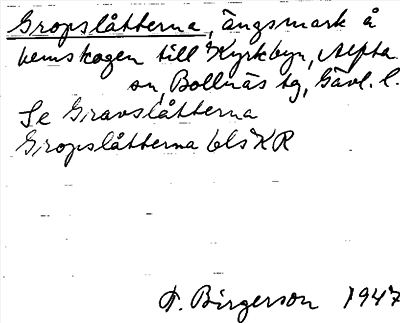 Gropslåtterna, ängsmark å
hemskogen till Kyrkbyn, Alfta
sn, Bollnäs tg, Gävl. l.
Se Gravslåtterna
Gropslåtterna bls KR
F. Birgerson 1947